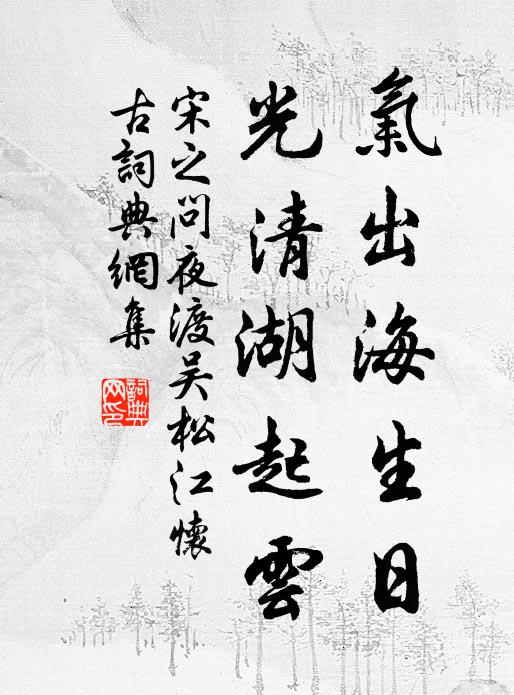 氣出海生日
光清湖起雲
宋之問夜渡吴松江懷
古詞典網集
詞典
网印